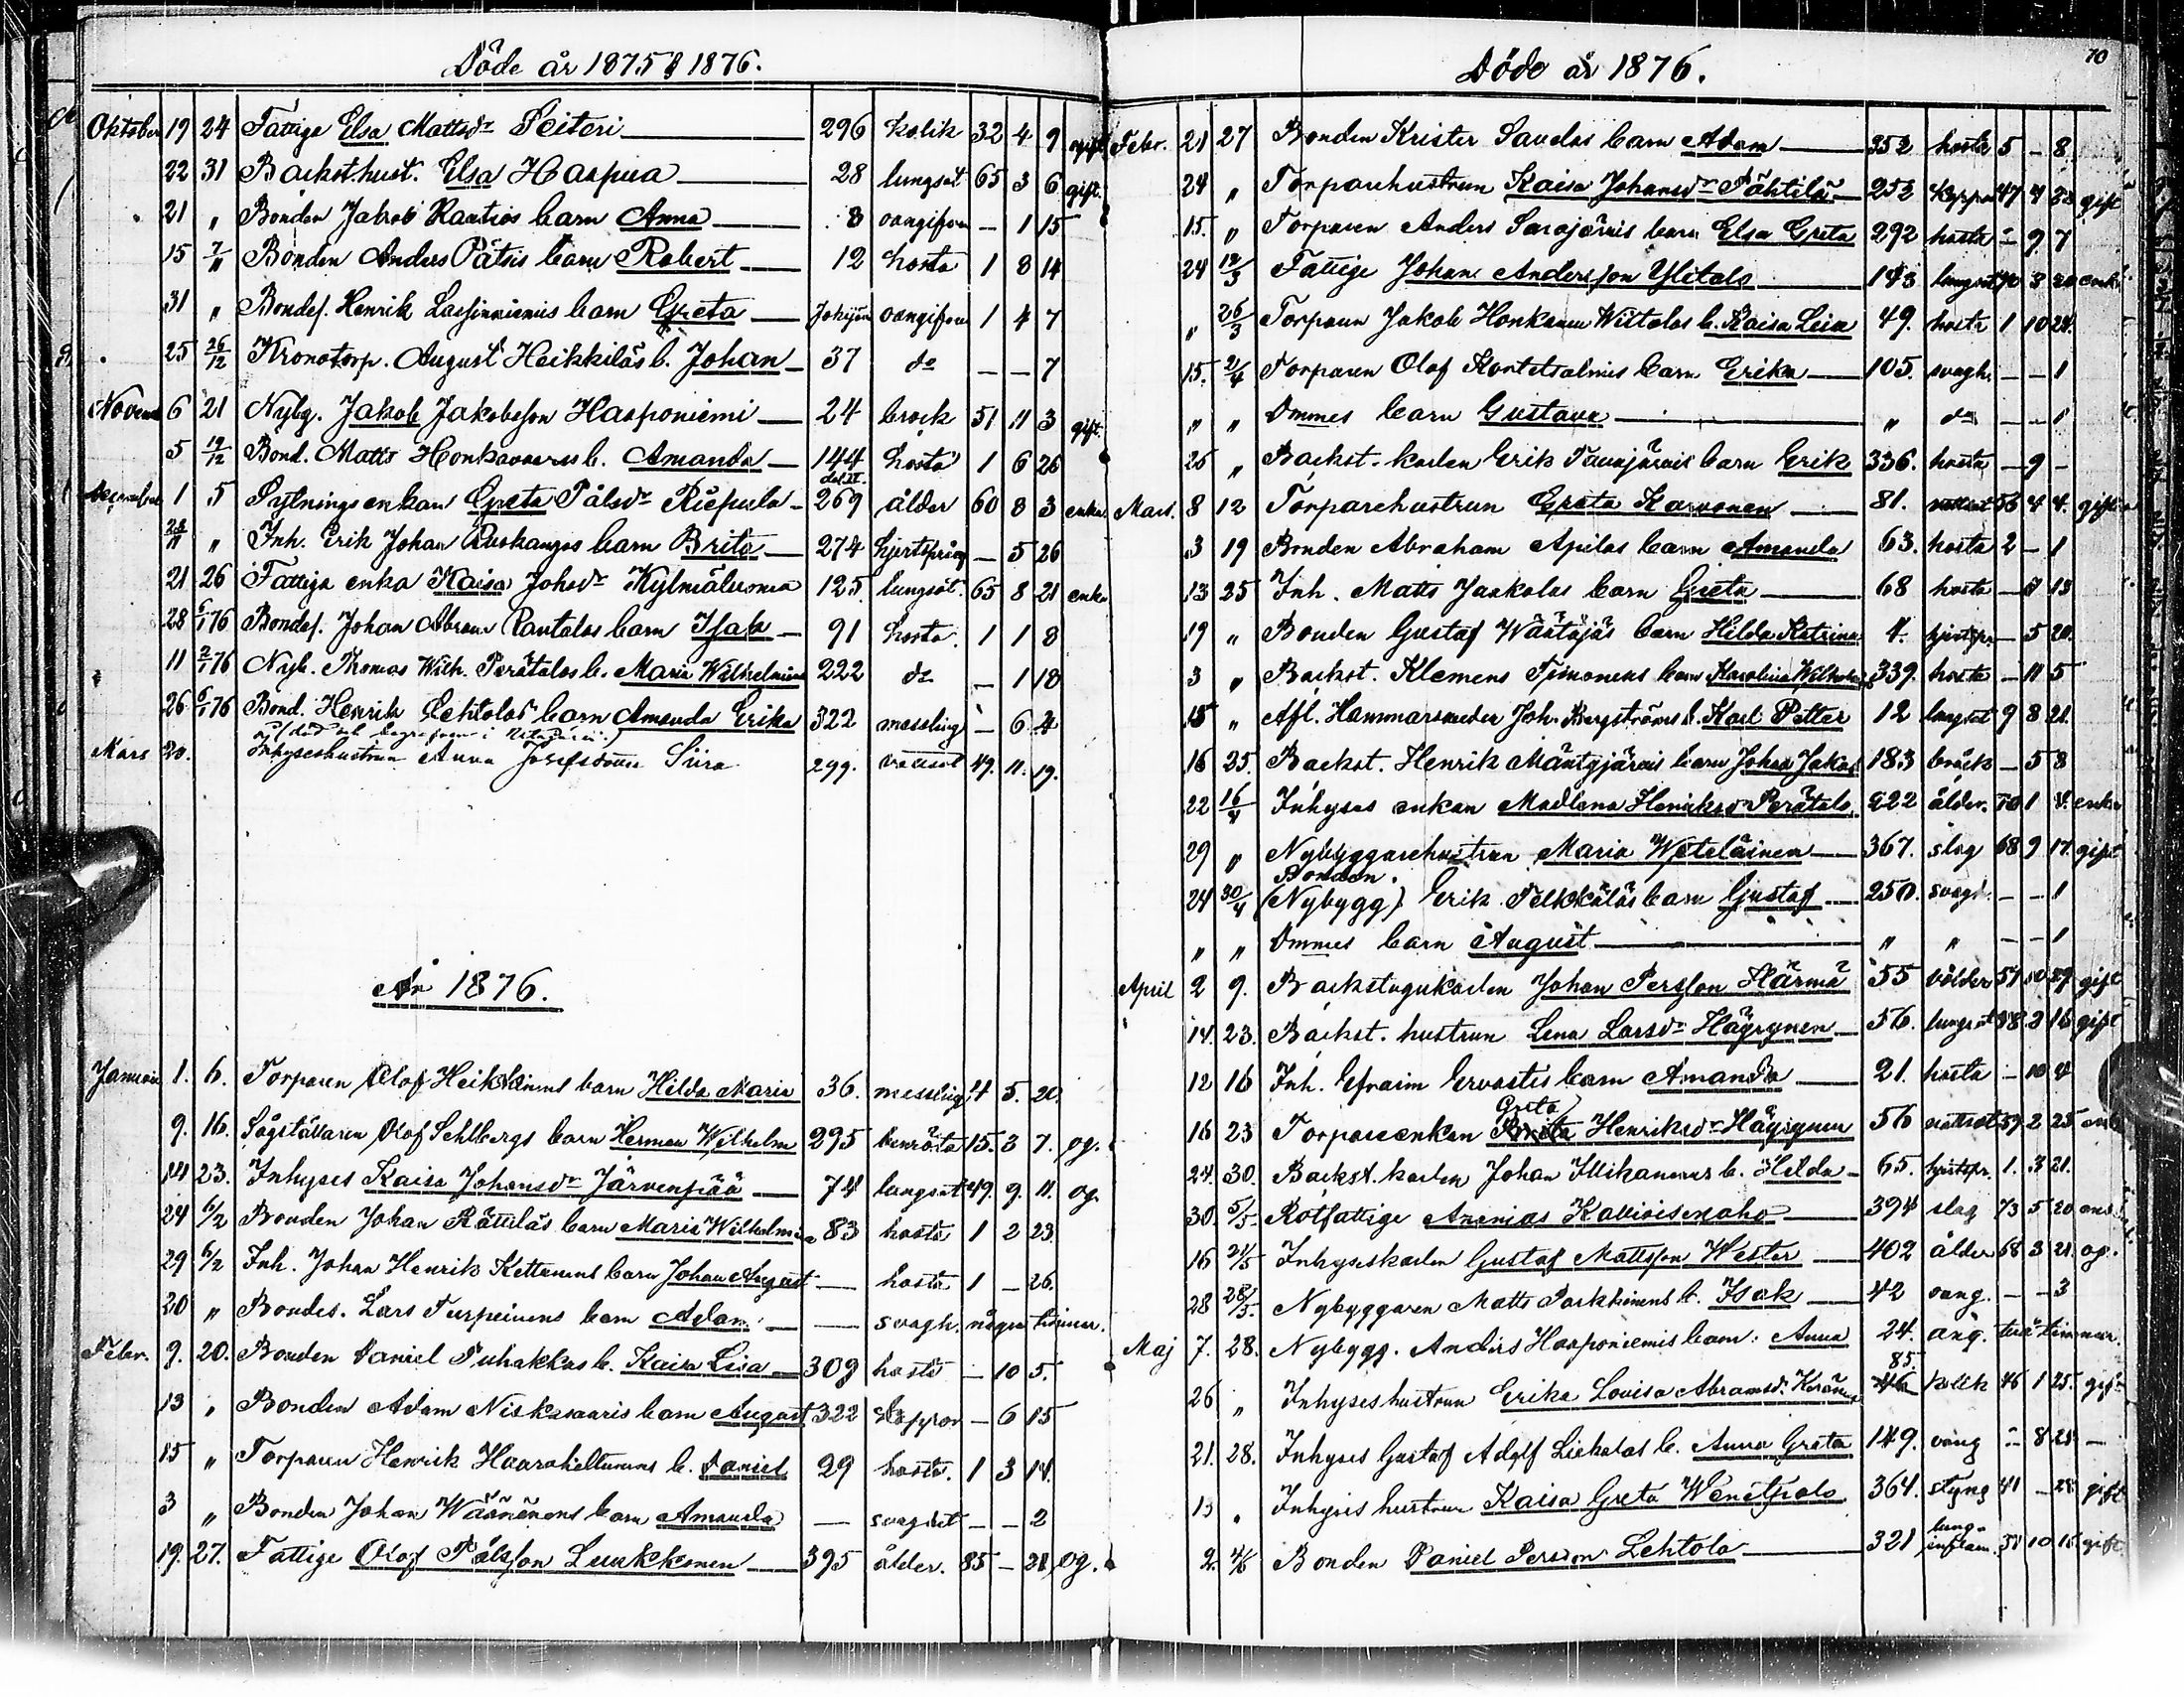 Döde år 1875 & 1876.
Oktober 19 24 Fattige Elsa Mattsdr Peiteri 296 kolik 32 4 9 gift
22 31 Backst. hust. Elsa Haapua 28 lungsot 65 3 6 gift.
21 " Bonden Jakob Rautios barn Anna 8 oangifven — 1 15
15 7/11 Bonden Anders Pätsis barn Robert 12 hosta 1 8 14
31 " Bondes. Henrik barn Greta oangifven 1 4 7
25 26/12 Kronotorp. August Heikkiläs b. Johan 37 do — — 7
Novemb 6 21 Nybg. Jakob Jakobsson Haaponiemi 24 bråck 51 11 3 gift.
5 19/12 Bond. Matts b. Amanda 144 hosta 1 6 26
December 1 5 Sytnings enkan Greta Pålsdr Riepula 269 ålder 60 8 3 enka
" Inh. Erik Johan Ruokangas barn Brita 274 hjertspräng — 5 26
21 26 Fattiga enka Kaisa Johsdr Kylmäluoma 125 lungsot. 65 8 21 enka
28 6/1 76 Bondes. Johan Abram Rantalas barn Isak 91 hosta 1 1 8
11 2/1 76 Nyb. Thomas Wilh. Perätalos b. Maria Wilhelmina 222 do — 1 18
26 6/1 76 Bond. Henrik Lehtolas barn Amanda Erika 322 messling — 6 4
Mars 20. Inhyseshustrun Anna Josefsdotter Siira 299. vattsot 49. 11. 19.
År 1876.
Januari 1. 6. Torparen Olof Heikkinens barn Hilda Maria 36. messling 4 5. 20.
9. 16. Sågställaren Olof Sehlbergs barn Herman Wilhelm 295 benröta 15. 3 7. og.
14 23. Inhyses Kaisa Johansdr Järvenpää 74 lungsot 49. 9. 11. og.
24 6/2 Bonden Johan Rättiläs barn Maria Wilhelmina 83 hosta 1 2 23
29 6/2 Inh. Johan Henrik Kettunens barn Johan August — hosta 1 — 26.
20 " Bondes. Lars Turpeinens barn Adam — svagh. några timmar.
Febr. 9. 20. Bonden Daniel Puhakkas b. Kaisa Liisa 309 hosta — 10 5.
13 " Bonden Adam Niskasaaris barn August 322 koppor — 6 15
15 " Torparen Henrik b. Daniel 29 hosta. 1 3 14.
3 " Bonden Johan Wäänänens barn Amanda — svaghet — — 2
19. 27. Fattige Olof Pålsson Luukkonen 395 ålder. 85 — 28 og.
Döde år 1876.
70
Febr. 21 27 Bonden Krister barn Adam 352 hosta 5 — 8
24 " Torparehustrun Kaisa Johansdr Pähtilä 253 koppor 47 gift
15. " Torparen Anders Sarajärvis barn Elsa Greta 292 hosta — 9 7
24 12/3 Fattige Johan Andersson Ylitalo 143 lungsot 70 3 20 enkl.
" 26/3 Torparen Jakob Honkanen Wiitalas b. Kaisa Liisa 49. hosta 1 10 28.
15. 2/4 Torparen Olof Kortetsalmis barn Erika 105. svagh. — — 1
" " Dmmes barn Gustava " do — — 1
25 " Backst. karlen Erik barn Erik 336. hosta — 9 —
Mars. 8 12 Torparehustrun Greta Karvonen 81. 56 4 4. gift
3 19 Bonden Abraham Apilas barn Amanda 63. hosta 2 — 1
13 25 Inh. Matts Jaakolas barn Greta 68 hosta — 8 13
19 " Bonden Gustaf Wäätäjäs barn Hilda Katrina 4. hjertspr. — 5 20.
3 " Backst. Klemens Timonens barn Karolina Wilhelmina 339. hosta — 11 5
15 " Afl. Hammarsmeden Joh. Bergströms b. Karl Petter 12 lungsot 9 8 21.
16 25. Backst. Henrik Mäntyjärvis barn Johan Jakob 183 bråck — 5 8
22 16/4 Inhyses enkan Madlena Henriksdr Perätalo. 222 ålder. 70 1 8. enka
29 " Nybyggarehustrun Maria Weteläinen 367. slag 68 9 17. gift
Bonden.
24 30/4 (Nybygg) Erik Pelkkäläs barn Gustaf 250. svagh. — — 1
" " Dmmes barn August " " — — 1
April 2 9. Backstugukarlen Johan Persson Härmä 55 57 10 29 gift
14. 23. Backst. hustrun Lena Larsdr Häyrynen 56. lungsot 58 2 16 gift
12 16 Inh. Efraim Ervastis barn Amanda 21. hosta — 10 4
Greta
16 23 Torpareenkan Brita Henriksdr Häyrynen 56 vattsot 59 2 25 enka
24. 30. Backst. karlen Johan b. Hilda 65. hjertspr. 1. 3 21.
30. 5/5 Rotfattige Ananias 394 slag 73 5 20
16 21/5 Inhyseskarlen Gustaf Mattsson Wester 402 ålder 68 3 21. og.
28 28/5. Nybyggaren Matts Parkkinens b. Isak 42 oang. — — 3
Maj 7. 28. Nybygg. Anders Haaponiemis barn: Anna 24. ang. två timmar.
85.
26 " Inhyses hustrun Erika Lovisa Abramsdr. Keränen 46 kolik 46 1 25. gift
21. 28. Inhyses Gustaf Adolf Liekalas b. Anna Greta 149. oang — 8 28 —
13 " Inhyses hustrun Kaisa Greta 364. styng 41 — 28. gift
2. 4/6 Bonden Daniel Persson Lehtola 321 lung-inflam. 51 10 15. gift